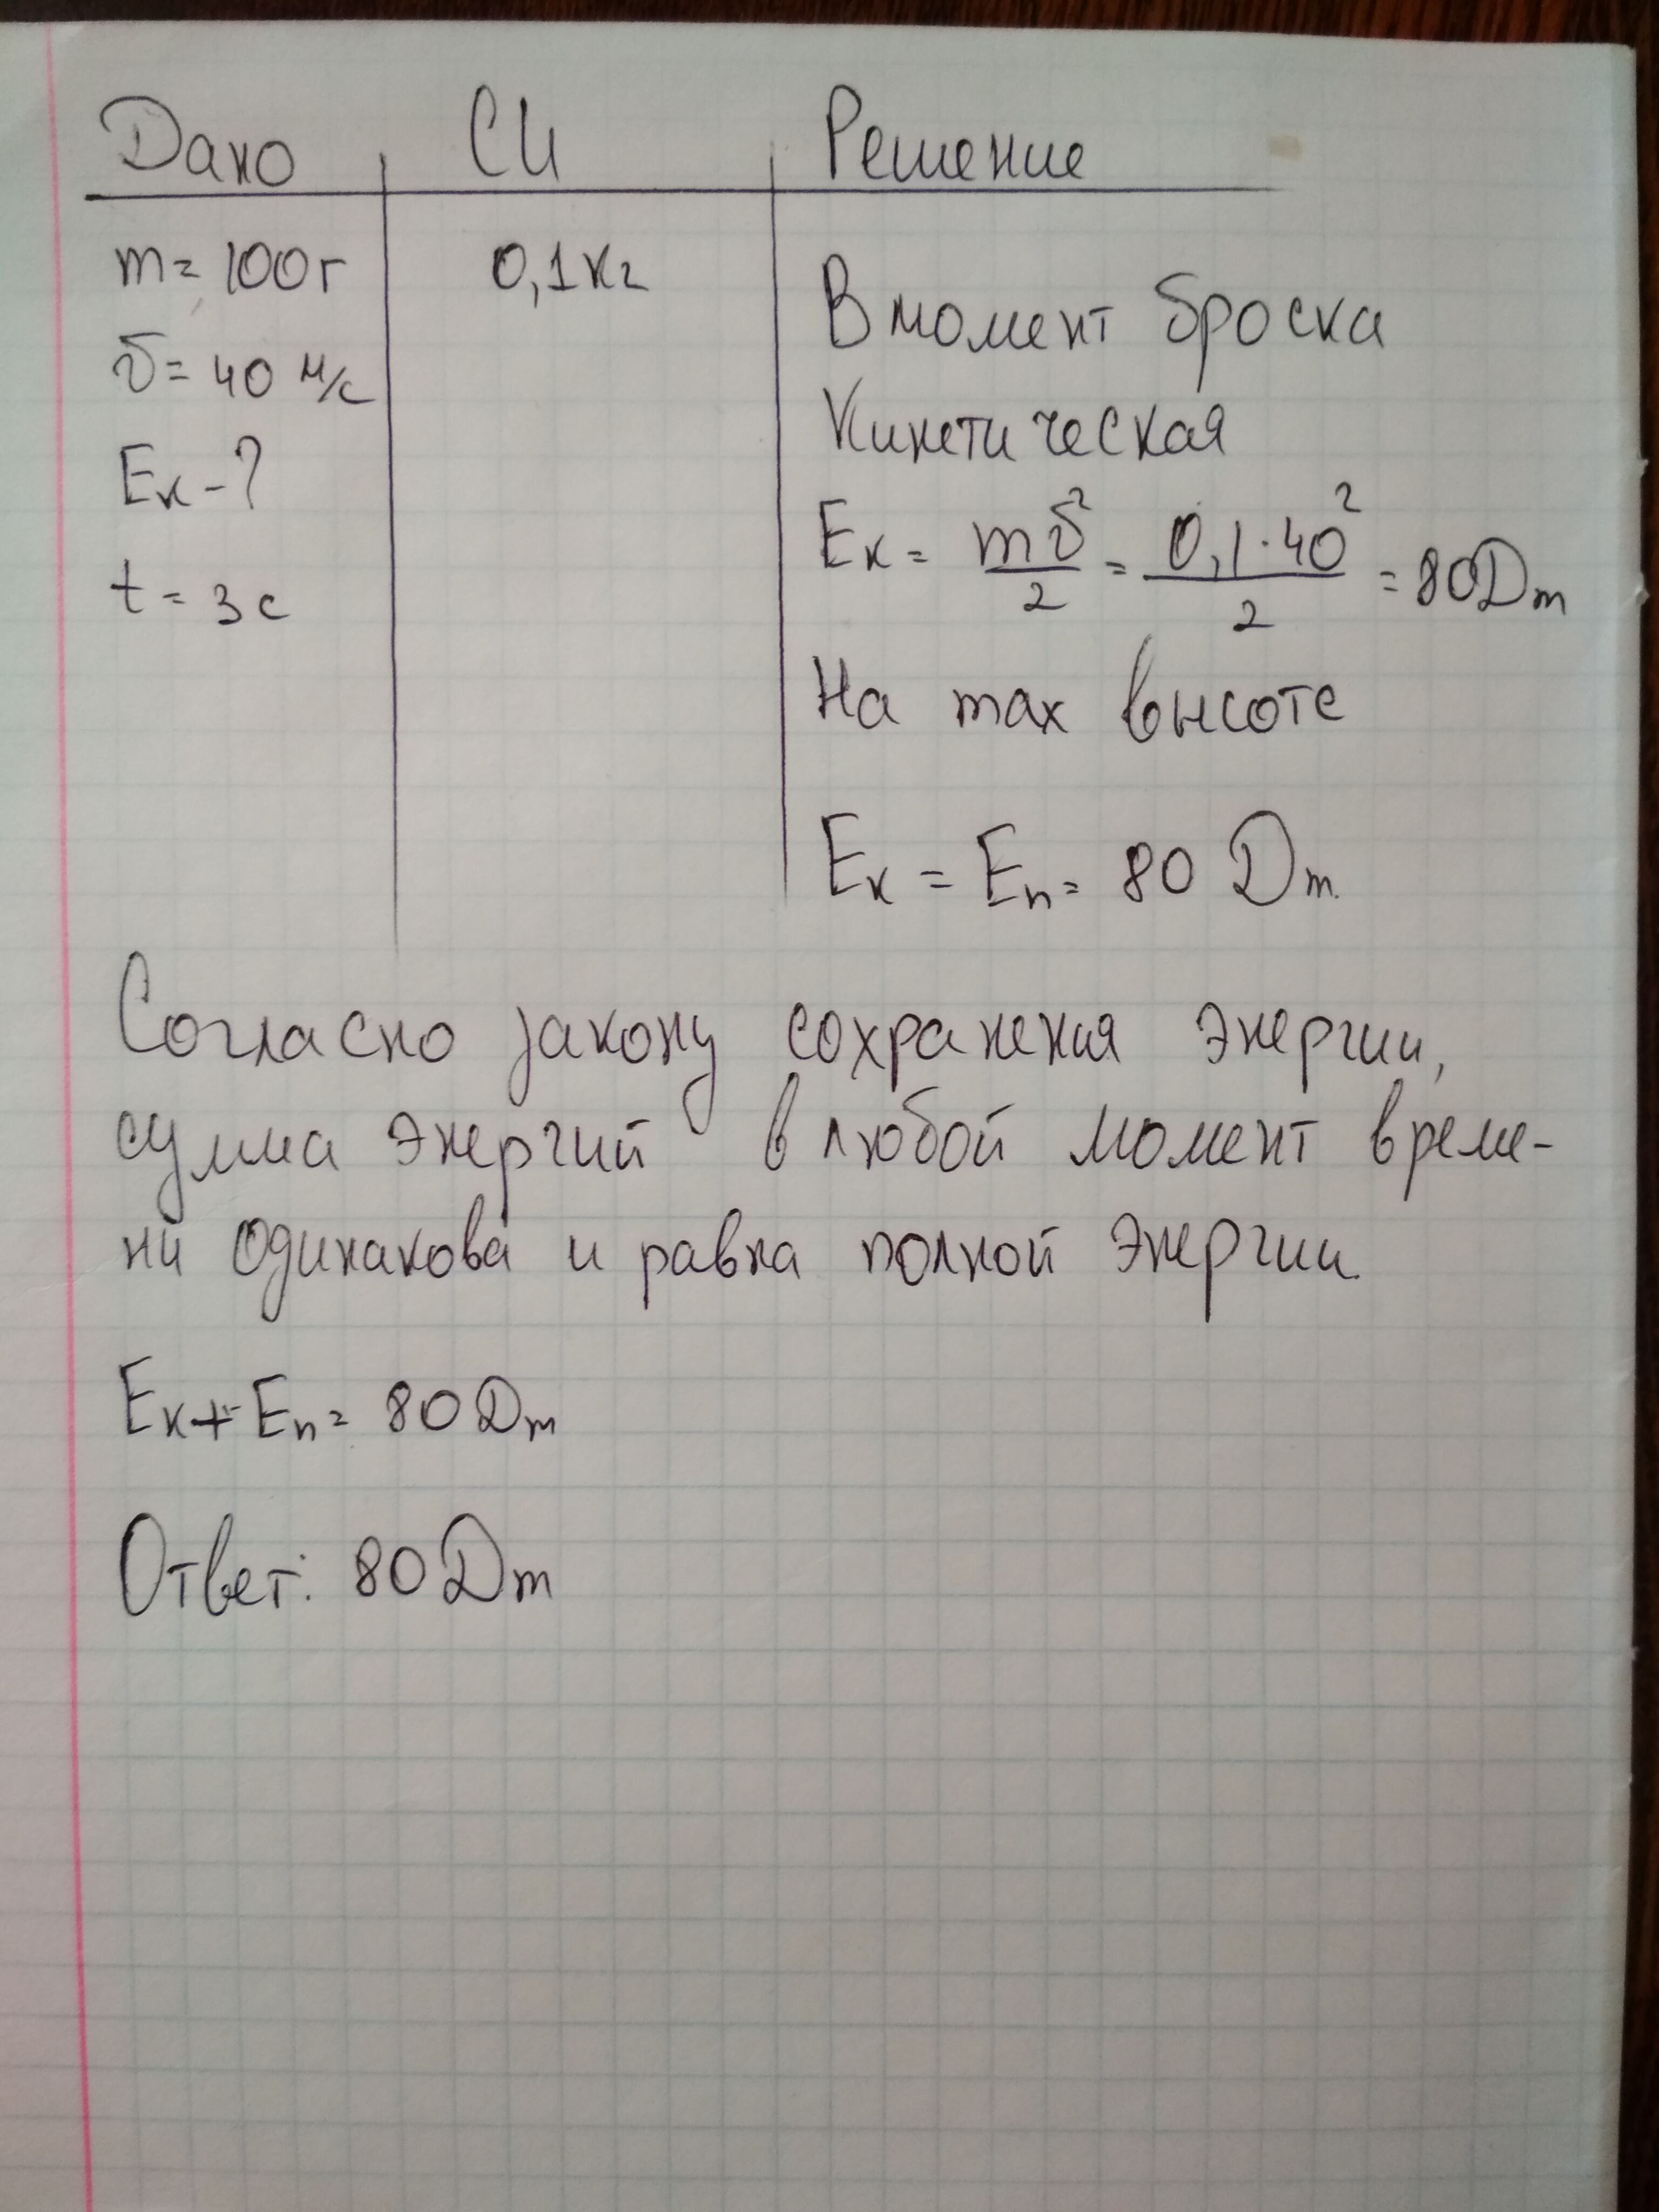 Дано СИ Решение
m = 100г 0,1кг
В момент броска
v = 40 м/с
Кинетическая
Eк - ?
Eк = mv²/2 = 0,1·40²/2 = 80Dm
t = 3с
На max высоте
Eк = Eп = 80 Dm.
Согласно закону сохранения энергии,
сумма энергий в любой момент време-
ни одинакова и равна полной энергии.
Eк + Eп = 80 Dm
Ответ: 80 Dm